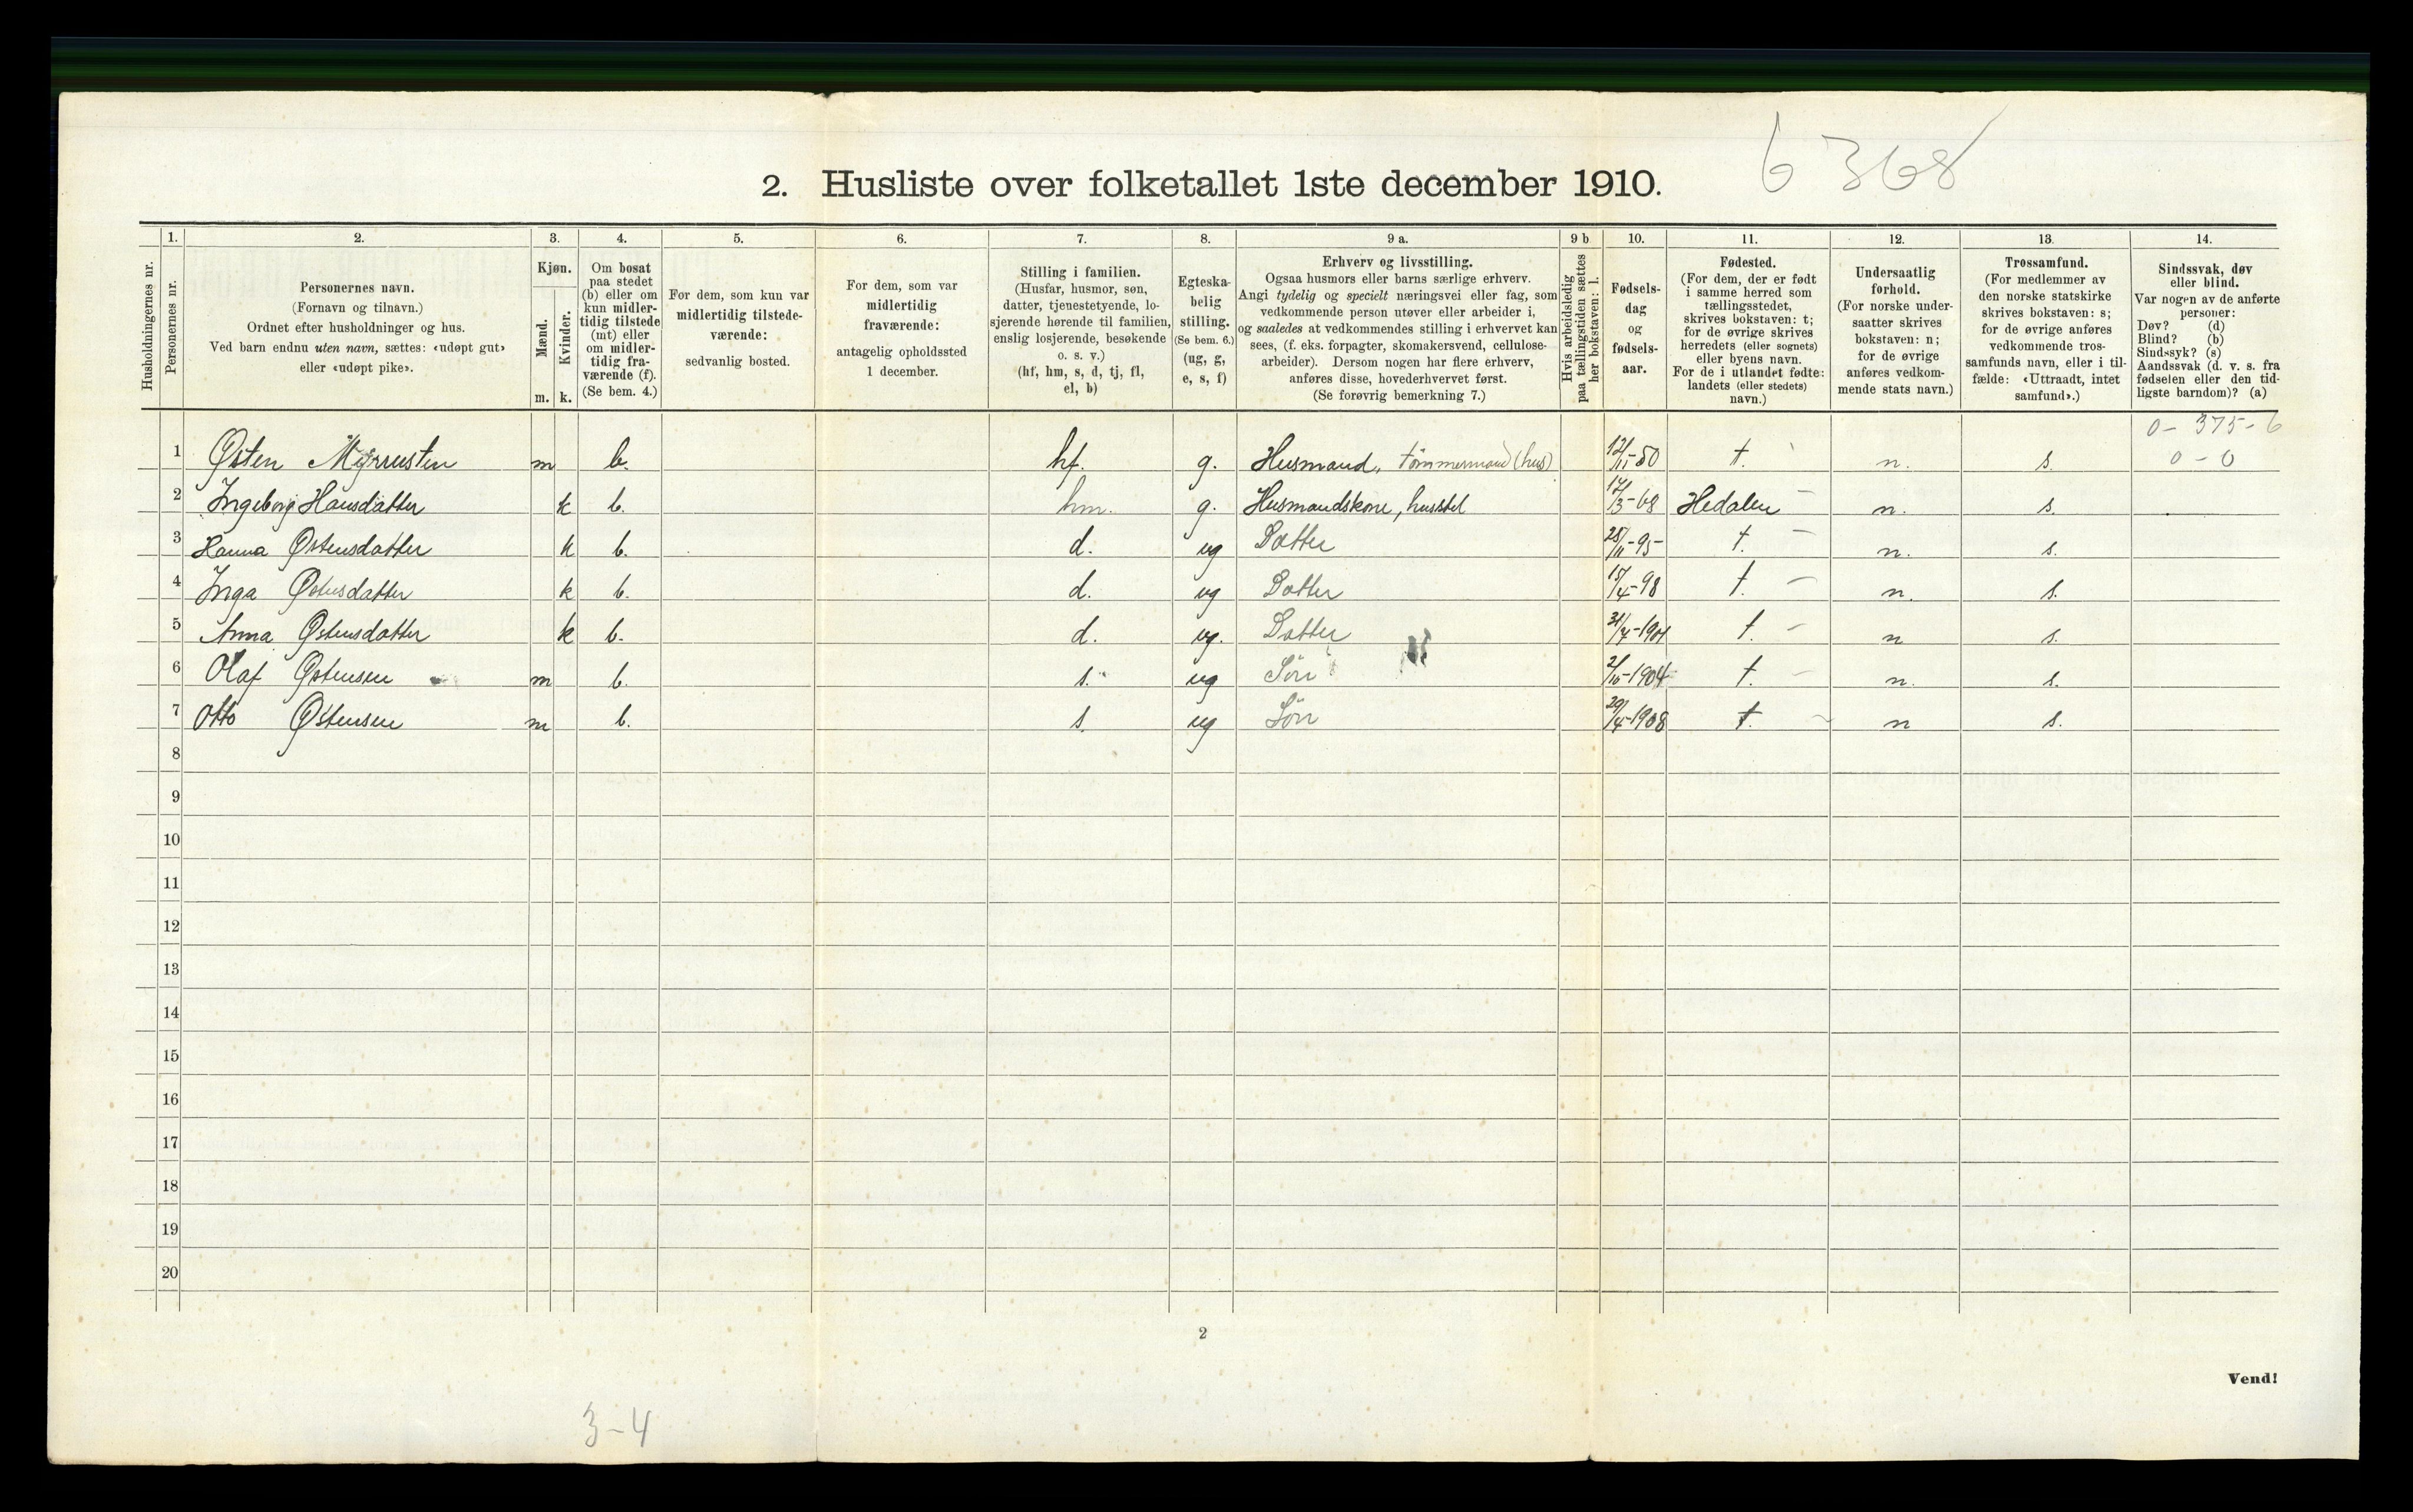 6 368
2. Husliste over folketallet 1ste december 1910.
Husholdningernes nr.
1. Personernes nr.
2. Personernes navn.
(Fornavn og tilnavn.)
Ordnet efter husholdninger og hus.
Ved barn endnu uten navn, sættes: «udøpt gut»
eller «udøpt pike».
3. Kjøn.
Mænd. Kvinder.
m. k.
4. Om bosat
paa stedet
(b) eller om
kun midler-
tidig tilstede
(mt) eller
om midler-
tidig fra-
værende (f).
(Se bem. 4.)
5. For dem, som kun var
midlertidig tilstede-
værende:
sedvanlig bosted.
6. For dem, som var
midlertidig
fraværende:
antagelig opholdssted
1 december.
7. Stilling i familien.
(Husfar, husmor, søn,
datter, tjenestetyende, lo-
sjerende hørende til familien,
enslig losjerende, besøkende
o. s. v.)
(hf, hm, s, d, tj, fl,
el, b)
8. Egteska-
belig
stilling.
(Se bem. 6.)
(ug, g,
e, s, f)
9 a. Erhverv og livsstilling.
Ogsaa husmors eller barns særlige erhverv.
Angi tydelig og specielt næringsvei eller fag, som
vedkommende person utøver eller arbeider i,
og saaledes at vedkommendes stilling i erhvervet kan
sees, (f. eks. forpagter, skomakersvend, cellulose-
arbeider). Dersom nogen har flere erhverv,
anføres disse, hovederhvervet først.
(Se forøvrig bemerkning 7.)
9 b Hvis arbeidsledig
paa tællingstiden sættes
her bokstaven: l.
10. Fødsels-
dag
og
fødsels-
aar.
11. Fødested.
(For dem, der er født
i samme herred som
tællingsstedet,
skrives bokstaven: t;
for de øvrige skrives
herredets (eller sognets)
eller byens navn.
For de i utlandet fødte:
landets (eller stedets)
navn.)
12. Undersaatlig
forhold.
(For norske under-
saatter skrives
bokstaven: n;
for de øvrige
anføres vedkom-
mende stats navn.)
13. Trossamfund.
(For medlemmer av
den norske statskirke
skrives bokstaven: s;
for de øvrige anføres
vedkommende tros-
samfunds navn, eller i til-
fælde: «Uttraadt, intet
samfund».)
14. Sindssvak, døv
eller blind.
Var nogen av de anførte
personer:
Døv? (d)
Blind? (b)
Sindssyk? (s)
Aandssvak (d. v. s. fra
fødselen eller den tid-
ligste barndom)? (a)
0 - 375 - 6
1 Østen Myrrusten m b. hf. g. Husmand, tømmermand (hus) 12/11-50 t. n. s. 0 - 0
2 Ingeborg Hansdatter k b. hm. g. Husmandskone, husstel 17/3-68 Hedalen n. s.
3 Hanna Østensdatter k b. d. ug Datter 28/11-95 t. n. s.
4 Inga Østensdatter k b. d. ug Datter 15/4-98 t. n. s.
5 Anna Østensdatter k b. d. ug. Datter t. n s.
6 Olaf Østensen m b. s. ug Søn 2/10-1904 t. n. s.
7 Otto Østensen m b. s. ug Søn 29/4-1908 t. n s.
8
9
10
11
12
13
14
15
16
17
18
19
20
2
Vend!
3-4